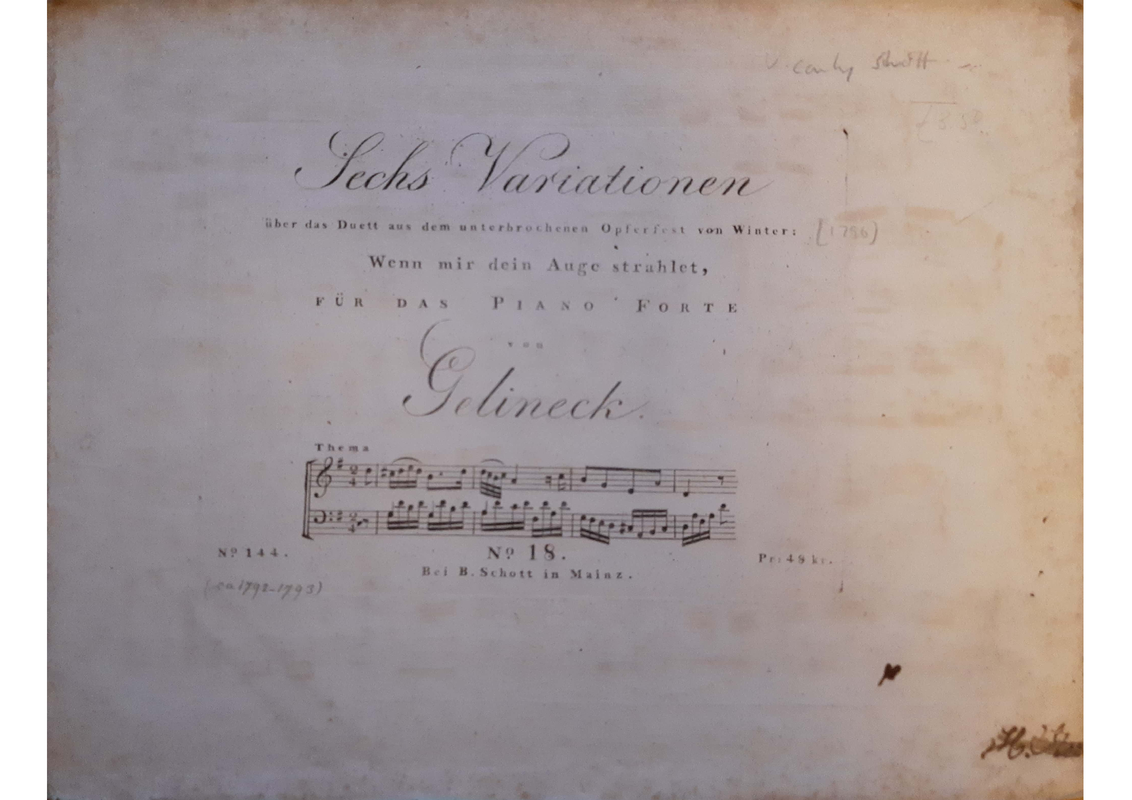 v. early Schott
£8.50
Sechs Variationen
über das Duett aus dem unterbrochenen Opferfest von Winter: [1796]
Wenn mir dein Auge strahlet,
FÜR DAS PIANO FORTE
von
Gelineck.
Thema
Nº 144.
Nº 18.
Pr: 48 kr.
Bei B. Schott in Mainz.
(ca 1792-1793)